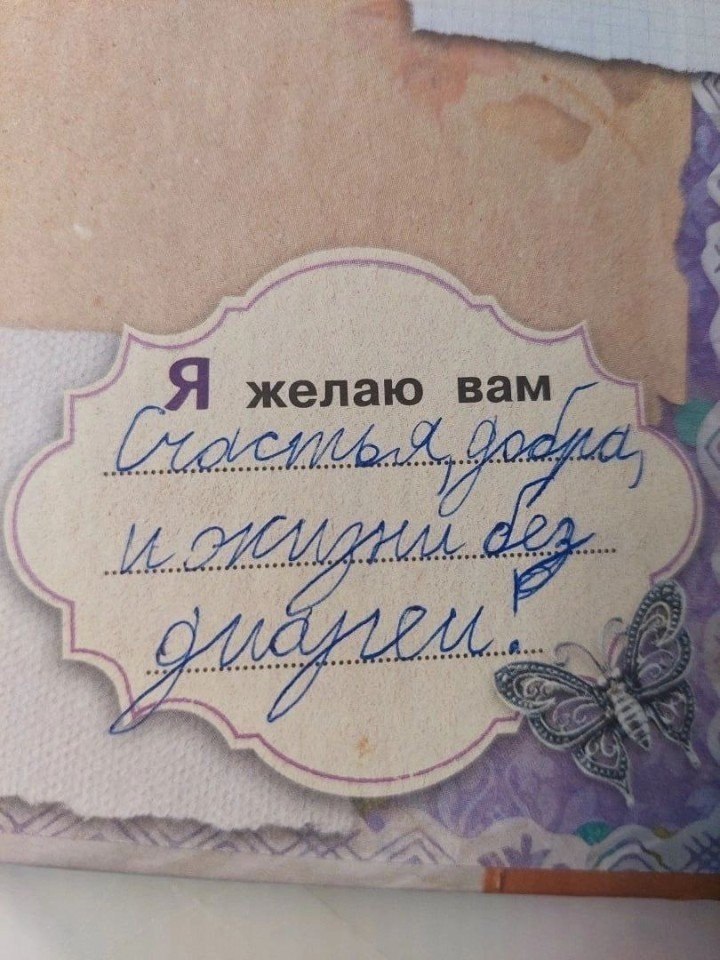 Я желаю вам
Счастья, добра,
и жизни без
диареи!